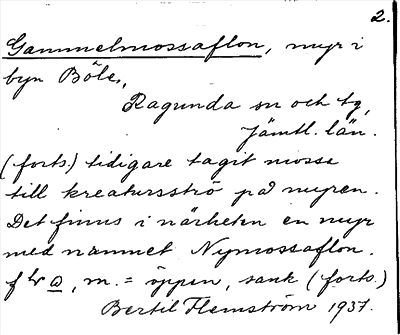 2.
Gammelmossaflon, myr i
byn Böle,
Ragunda sn och tg,
Jämtl. län.
(forts.) tidigare tagit mosse
till kreatursströ på myren.
Det finns i närheten en myr
med namnet Nymossaflon.
m. = öppen, sank (forts.)
Bertil Flemström 1937.